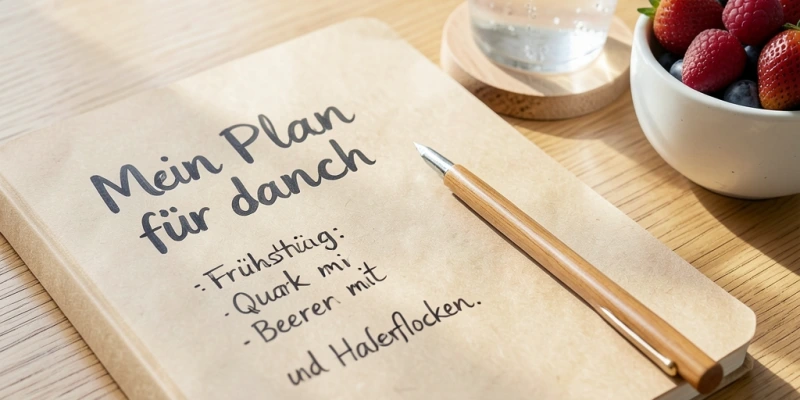 Mein Plan
für danch
- Frühstüig:
- Quark mi
- Beeren mit
und Haferflocken.